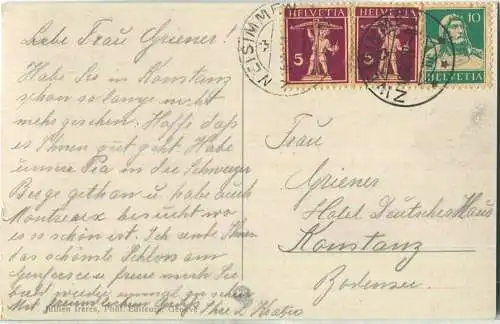 Liebe Frau Griener!
Habe Sie in Konstanz
schon so lange nicht
mehr gesehen. Hoffe daß
es Ihnen gut geht. Habe
unsere Pia in die Schweizer
Berge gethan u. habe auch
Montreux besucht wo
es so schön ist. Ich sende Ihnen
das schönste Schloss am
Genfersee u. freue mich Sie
bald wieder einmal zu sehen
Mit freundlichem Gruß
Ihre L.
Jullien frères, Phot. Editeurs, Genève
ZWEISIMMEN
5 HELVETIA
5 HELVETIA
10 HELVETIA
Frau
Griener
Hotel Deutsches Haus
Konstanz
Bodensee